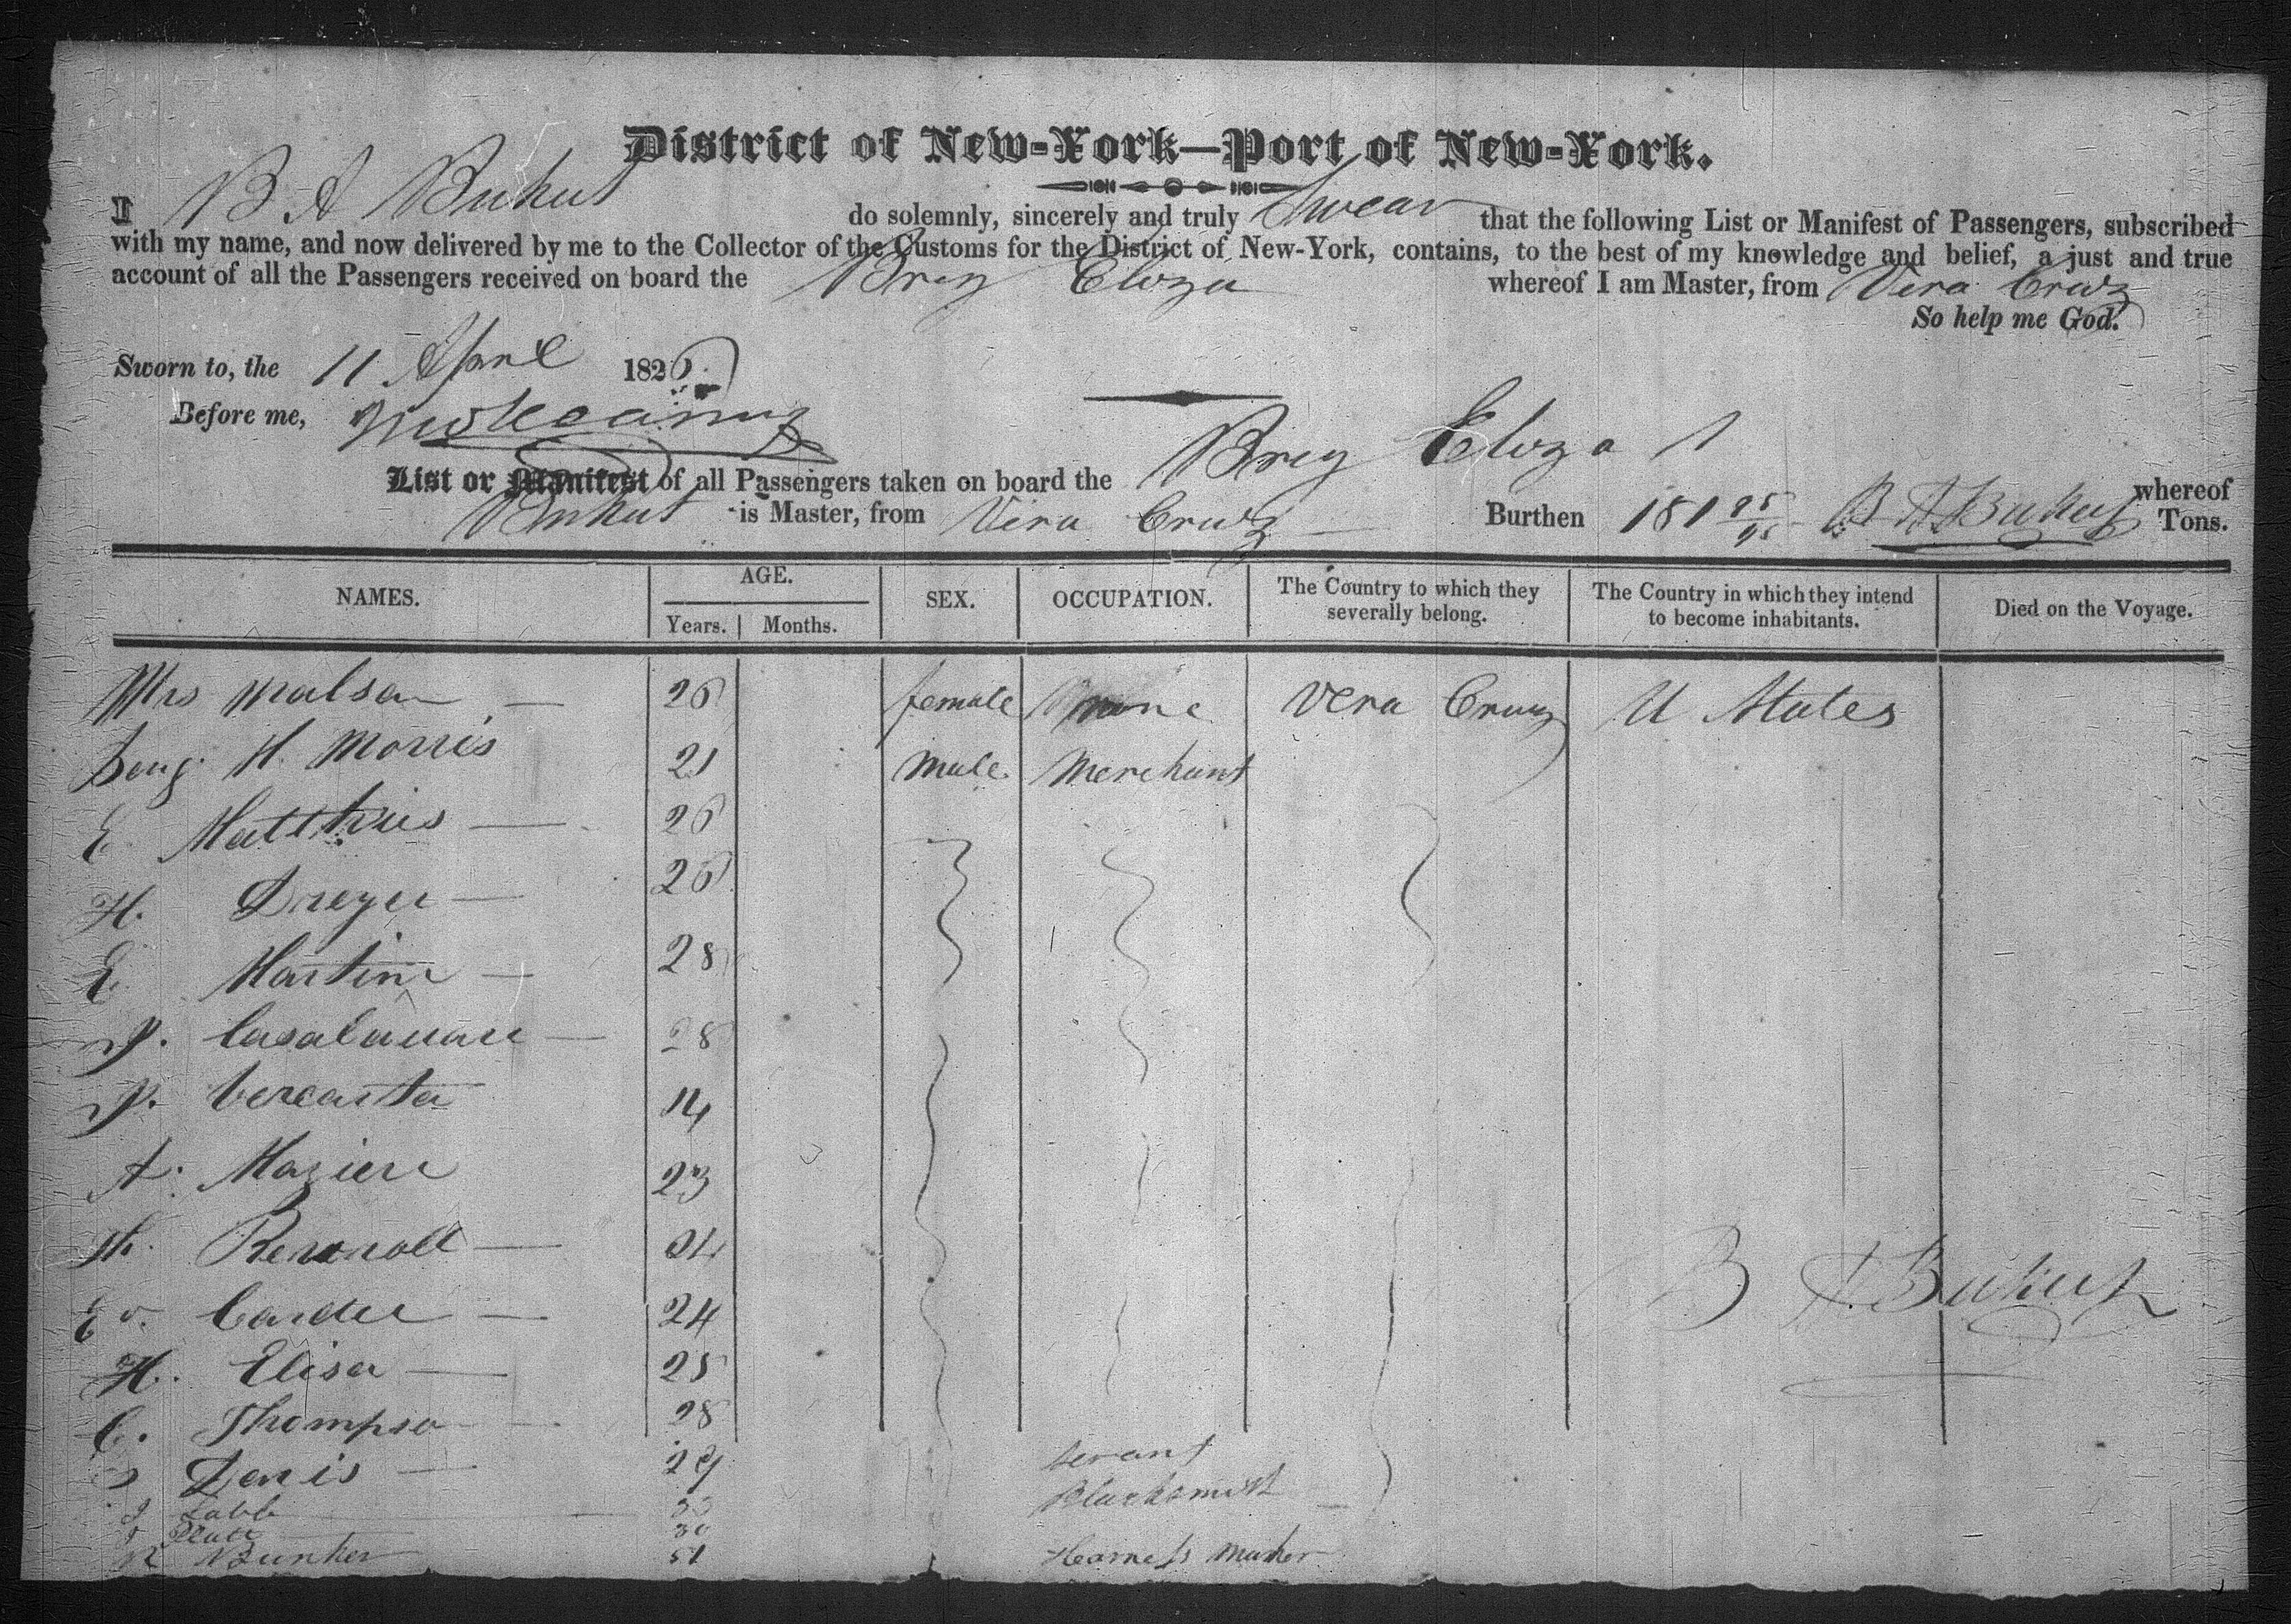 District of New-York—Port of New-York.
I B A Buhut do solemnly, sincerely and truly Swear that the following List or Manifest of Passengers, subscribed
with my name, and now delivered by me to the Collector of the Customs for the District of New-York, contains, to the best of my knowledge and belief, a just and true
account of all the Passengers received on board the Brig Eliza whereof I am Master, from Vera Cruz
So help me God.
Sworn to, the 11 April 1826
Before me,
List or Manifest of all Passengers taken on board the Brig Eliza whereof
Buhut is Master, from Vera Cruz Burthen 181 B A Buhut Tons.
NAMES. AGE. SEX. OCCUPATION. The Country to which they severally belong. The Country in which they intend to become inhabitants. Died on the Voyage.
Years. Months.
Mrs Watson 26 female none Vera Cruz U States
Benj. H. Morris 21 Male Merchant
E Matthius 26
H. Dreyer 26
E Martini 28
J. 28
P. 14
A. Maziere 23
24
Ed. Carder 24
H. Elisa 25
C. Thompson 28
Denis 29 Servant
J Labb Blacksmith
J 30
N Bunker 51 Harness Maker
B A Buhut